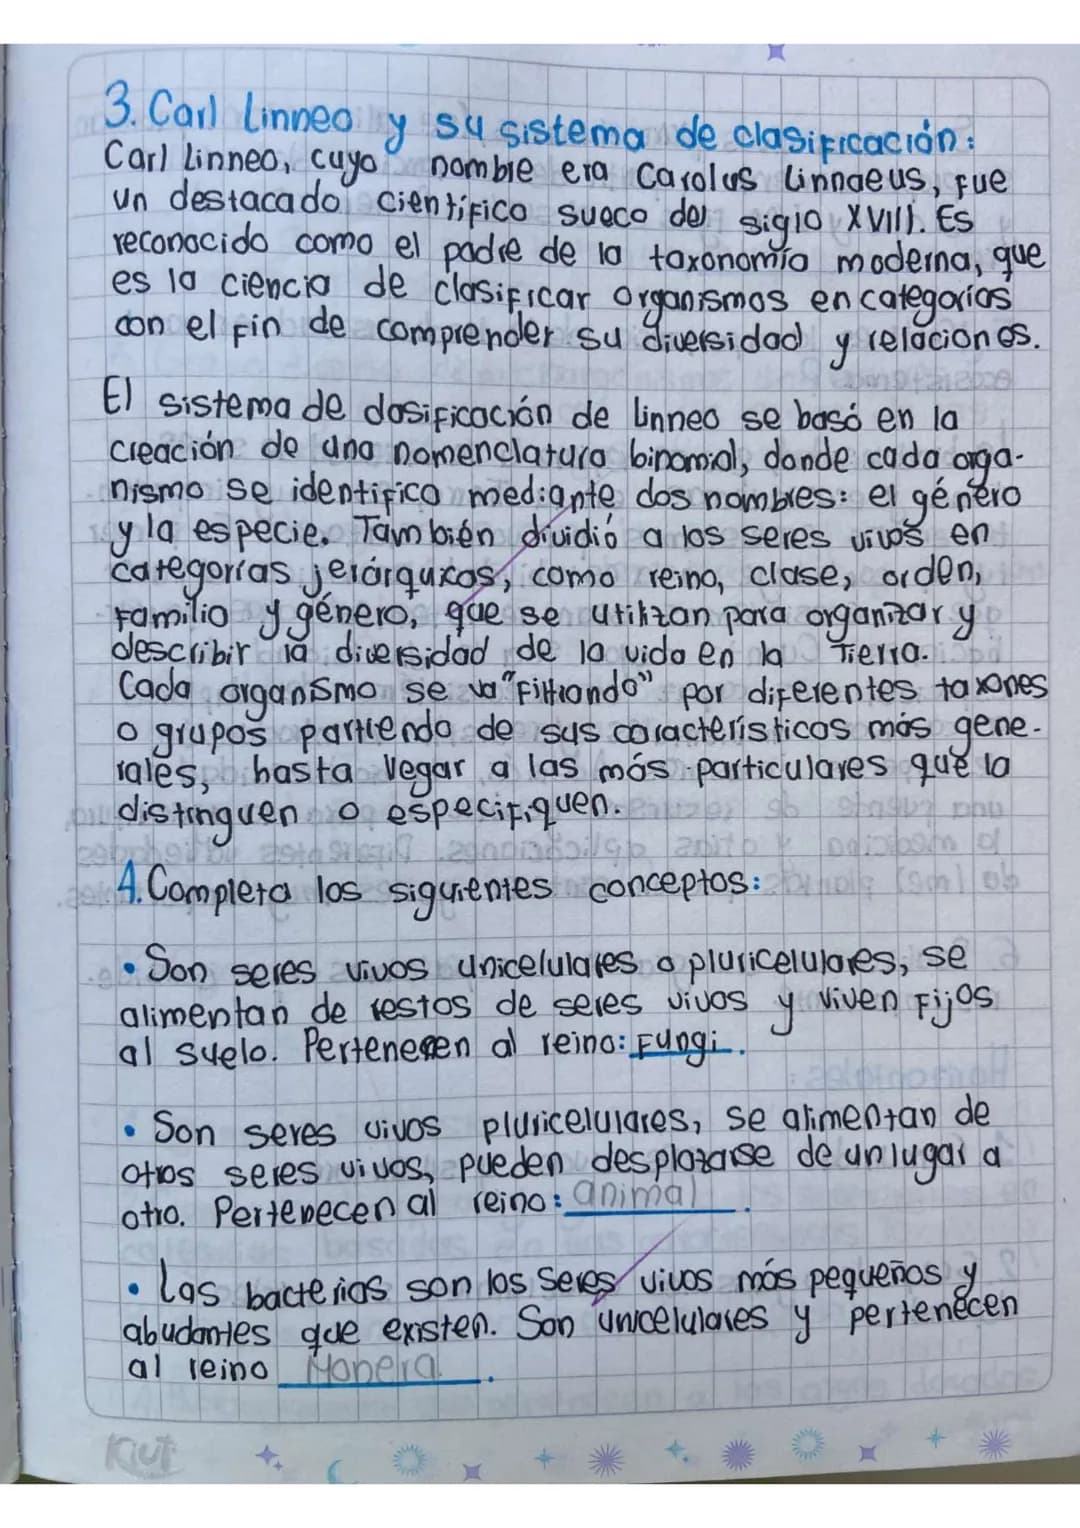 3. Carl Linneo y su sistema de clasificación:
Carl Linneo, cuyo nombre era Carolus Linnaeus, fue
un destacado científico sueco del siglo XVIII. Es
reconocido como el padre de la taxonomía moderna, que
es la ciencia de clasificar organismos en categorías
con el fin de comprender su diversidad y relaciones.
El sistema de clasificación de Linneo se basó en la
creación de una nomenclatura binomial, donde cada orga-
nismo se identifica mediante dos nombres: el género
y la especie. También dividió a los seres vivos en
categorías jerárquicas, como reino, clase, orden,
familia y género, que se utilizan para organizar y
describir la diversidad de la vida en la Tierra.
Cada organismo se va "filtrando" por diferentes taxones
o grupos partiendo de sus características más gene-
rales, hasta llegar a las más particulares que la
distinguen o especifiquen.
4. Completa los siguientes conceptos:
• Son seres vivos unicelulares o pluricelulares, se
alimentan de restos de seres vivos y viven fijos
al suelo. Pertenecen al reino: Fungi.
• Son seres vivos pluricelulares, se alimentan de
otros seres vivos, pueden desplazarse de un lugar a
otro. Pertenecen al reino: animal.
• Las bacterias son los seres vivos más pequeños y
abudantes que existen. Son unicelulares y pertenecen
al reino Monera.
Kiut